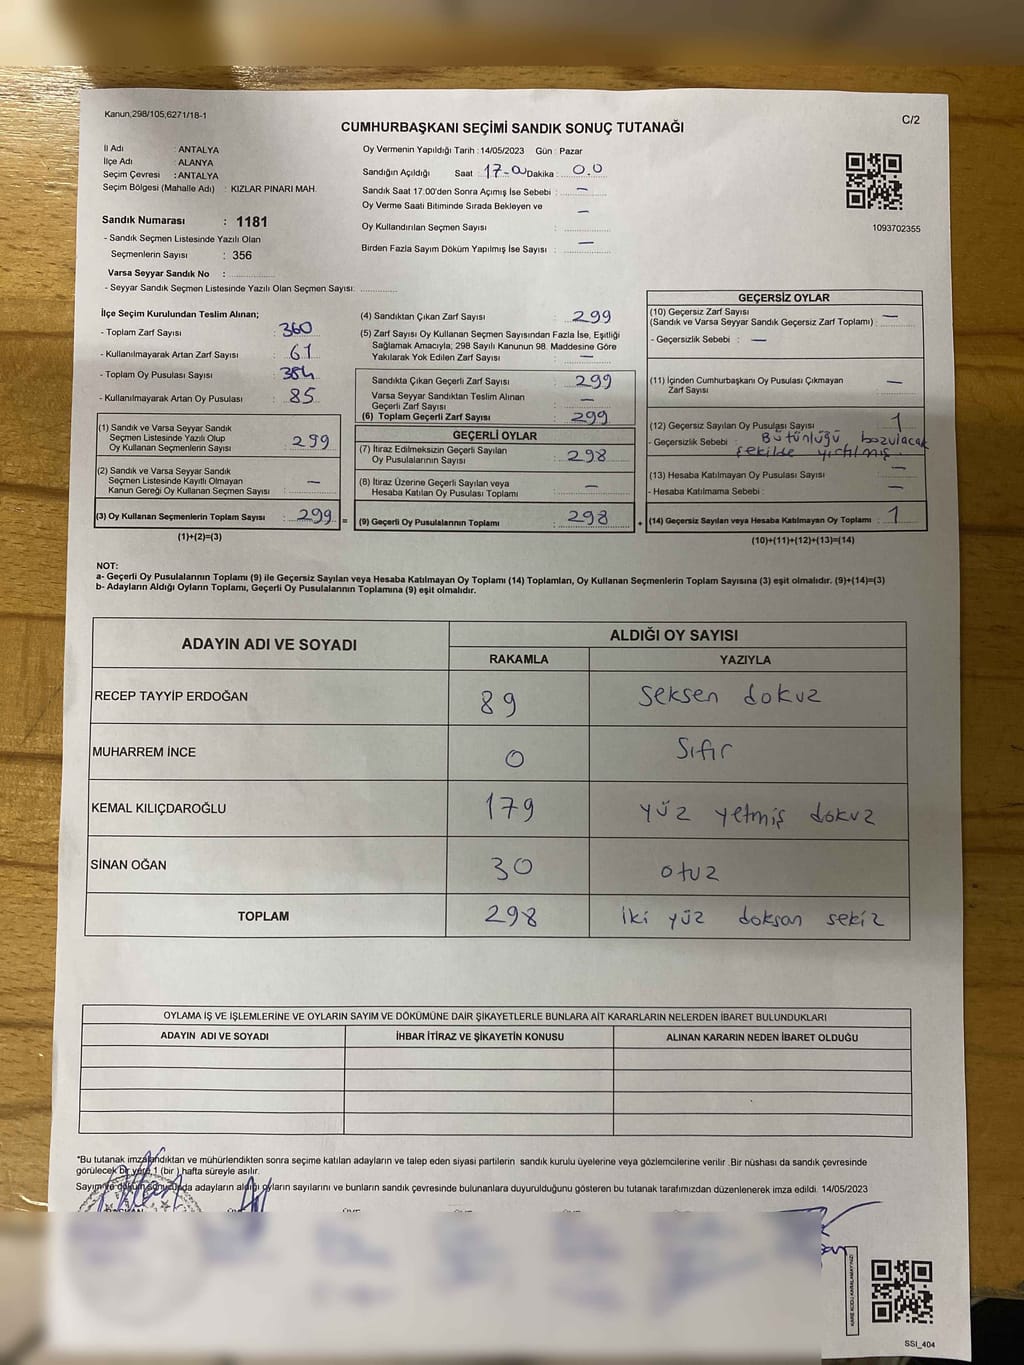 Kanun;298/105;6271/18-1
C/2
CUMHURBAŞKANI SEÇİMİ SANDIK SONUÇ TUTANAĞI
İl Adı : ANTALYA
İlçe Adı : ALANYA
Seçim Çevresi : ANTALYA
Seçim Bölgesi (Mahalle Adı) : KIZLAR PINARI MAH.
Sandık Numarası : 1181
- Sandık Seçmen Listesinde Yazılı Olan
Seçmenlerin Sayısı : 356
Varsa Seyyar Sandık No :
- Seyyar Sandık Seçmen Listesinde Yazılı Olan Seçmen Sayısı:
Oy Vermenin Yapıldığı Tarih : 14/05/2023 Gün : Pazar
Sandığın Açıldığı Saat : 17-00 Dakika : 0.0
Sandık Saat 17.00'den Sonra Açımış İse Sebebi : —
Oy Verme Saati Bitiminde Sırada Bekleyen ve —
Oy Kullandırılan Seçmen Sayısı :
Birden Fazla Sayım Döküm Yapılmış İse Sayısı : —
1093702355
İlçe Seçim Kurulundan Teslim Alınan;
- Toplam Zarf Sayısı : 360
- Kullanılmayarak Artan Zarf Sayısı : 61
- Toplam Oy Pusulası Sayısı : 384
- Kullanılmayarak Artan Oy Pusulası : 85
(1) Sandık ve Varsa Seyyar Sandık
Seçmen Listesinde Yazılı Olup
Oy Kullanan Seçmenlerin Sayısı : 299
(2) Sandık ve Varsa Seyyar Sandık
Seçmen Listesinde Kayıtlı Olmayan
Kanun Gereği Oy Kullanan Seçmen Sayısı : —
(3) Oy Kullanan Seçmenlerin Toplam Sayısı : 299 =
(1)+(2)=(3)
(4) Sandıktan Çıkan Zarf Sayısı : 299
(5) Zarf Sayısı Oy Kullanan Seçmen Sayısından Fazla İse, Eşitliği
Sağlamak Amacıyla; 298 Sayılı Kanunun 98. Maddesine Göre
Yakılarak Yok Edilen Zarf Sayısı : —
Sandıkta Çıkan Geçerli Zarf Sayısı : 299
Varsa Seyyar Sandıktan Teslim Alınan
Geçerli Zarf Sayısı : —
(6) Toplam Geçerli Zarf Sayısı : 299
GEÇERLİ OYLAR
(7) İtiraz Edilmeksizin Geçerli Sayılan
Oy Pusulalarının Sayısı : 298
(8) İtiraz Üzerine Geçerli Sayılan veya
Hesaba Katılan Oy Pusulası Toplamı : —
(9) Geçerli Oy Pusulalarının Toplamı : 298 +
GEÇERSİZ OYLAR
(10) Geçersiz Zarf Sayısı
(Sandık ve Varsa Seyyar Sandık Geçersiz Zarf Toplamı) : —
- Geçersizlik Sebebi : —
(11) İçinden Cumhurbaşkanı Oy Pusulası Çıkmayan
Zarf Sayısı : —
(12) Geçersiz Sayılan Oy Pusulası Sayısı : 1
- Geçersizlik Sebebi : Bütünlüğü bozulacak
şekilde yırtılmış.
(13) Hesaba Katılmayan Oy Pusulası Sayısı : —
- Hesaba Katılmama Sebebi : —
(14) Geçersiz Sayılan veya Hesaba Katılmayan Oy Toplamı : 1
(10)+(11)+(12)+(13)=(14)
NOT:
a- Geçerli Oy Pusulalarının Toplamı (9) ile Geçersiz Sayılan veya Hesaba Katılmayan Oy Toplamı (14) Toplamları, Oy Kullanan Seçmenlerin Toplam Sayısına (3) eşit olmalıdır. (9)+(14)=(3)
b- Adayların Aldığı Oyların Toplamı, Geçerli Oy Pusulalarının Toplamına (9) eşit olmalıdır.
ADAYIN ADI VE SOYADI
ALDIĞI OY SAYISI
RAKAMLA YAZIYLA
RECEP TAYYİP ERDOĞAN 89 seksen dokuz
MUHARREM İNCE 0 Sıfır
KEMAL KILIÇDAROĞLU 179 yüz yetmiş dokuz
SİNAN OĞAN 30 otuz
TOPLAM 298 iki yüz doksan sekiz
OYLAMA İŞ VE İŞLEMLERİNE VE OYLARIN SAYIM VE DÖKÜMÜNE DAİR ŞİKAYETLERLE BUNLARA AİT KARARLARIN NELERDEN İBARET BULUNDUKLARI
ADAYIN ADI VE SOYADI İHBAR İTİRAZ VE ŞİKAYETİN KONUSU ALINAN KARARIN NEDEN İBARET OLDUĞU
*Bu tutanak imzalandıktan ve mühürlendikten sonra seçime katılan adayların ve talep eden siyasi partilerin sandık kurulu üyelerine veya gözlemcilerine verilir .Bir nüshası da sandık çevresinde
görülecek bir yere 1 (bir ) hafta süreyle asılır.
Sayım ve döküm sonucunda adayların aldığı oyların sayılarını ve bunların sandık çevresinde bulunanlara duyurulduğunu gösteren bu tutanak tarafımızdan düzenlenerek imza edildi. 14/05/2023
SSI_404